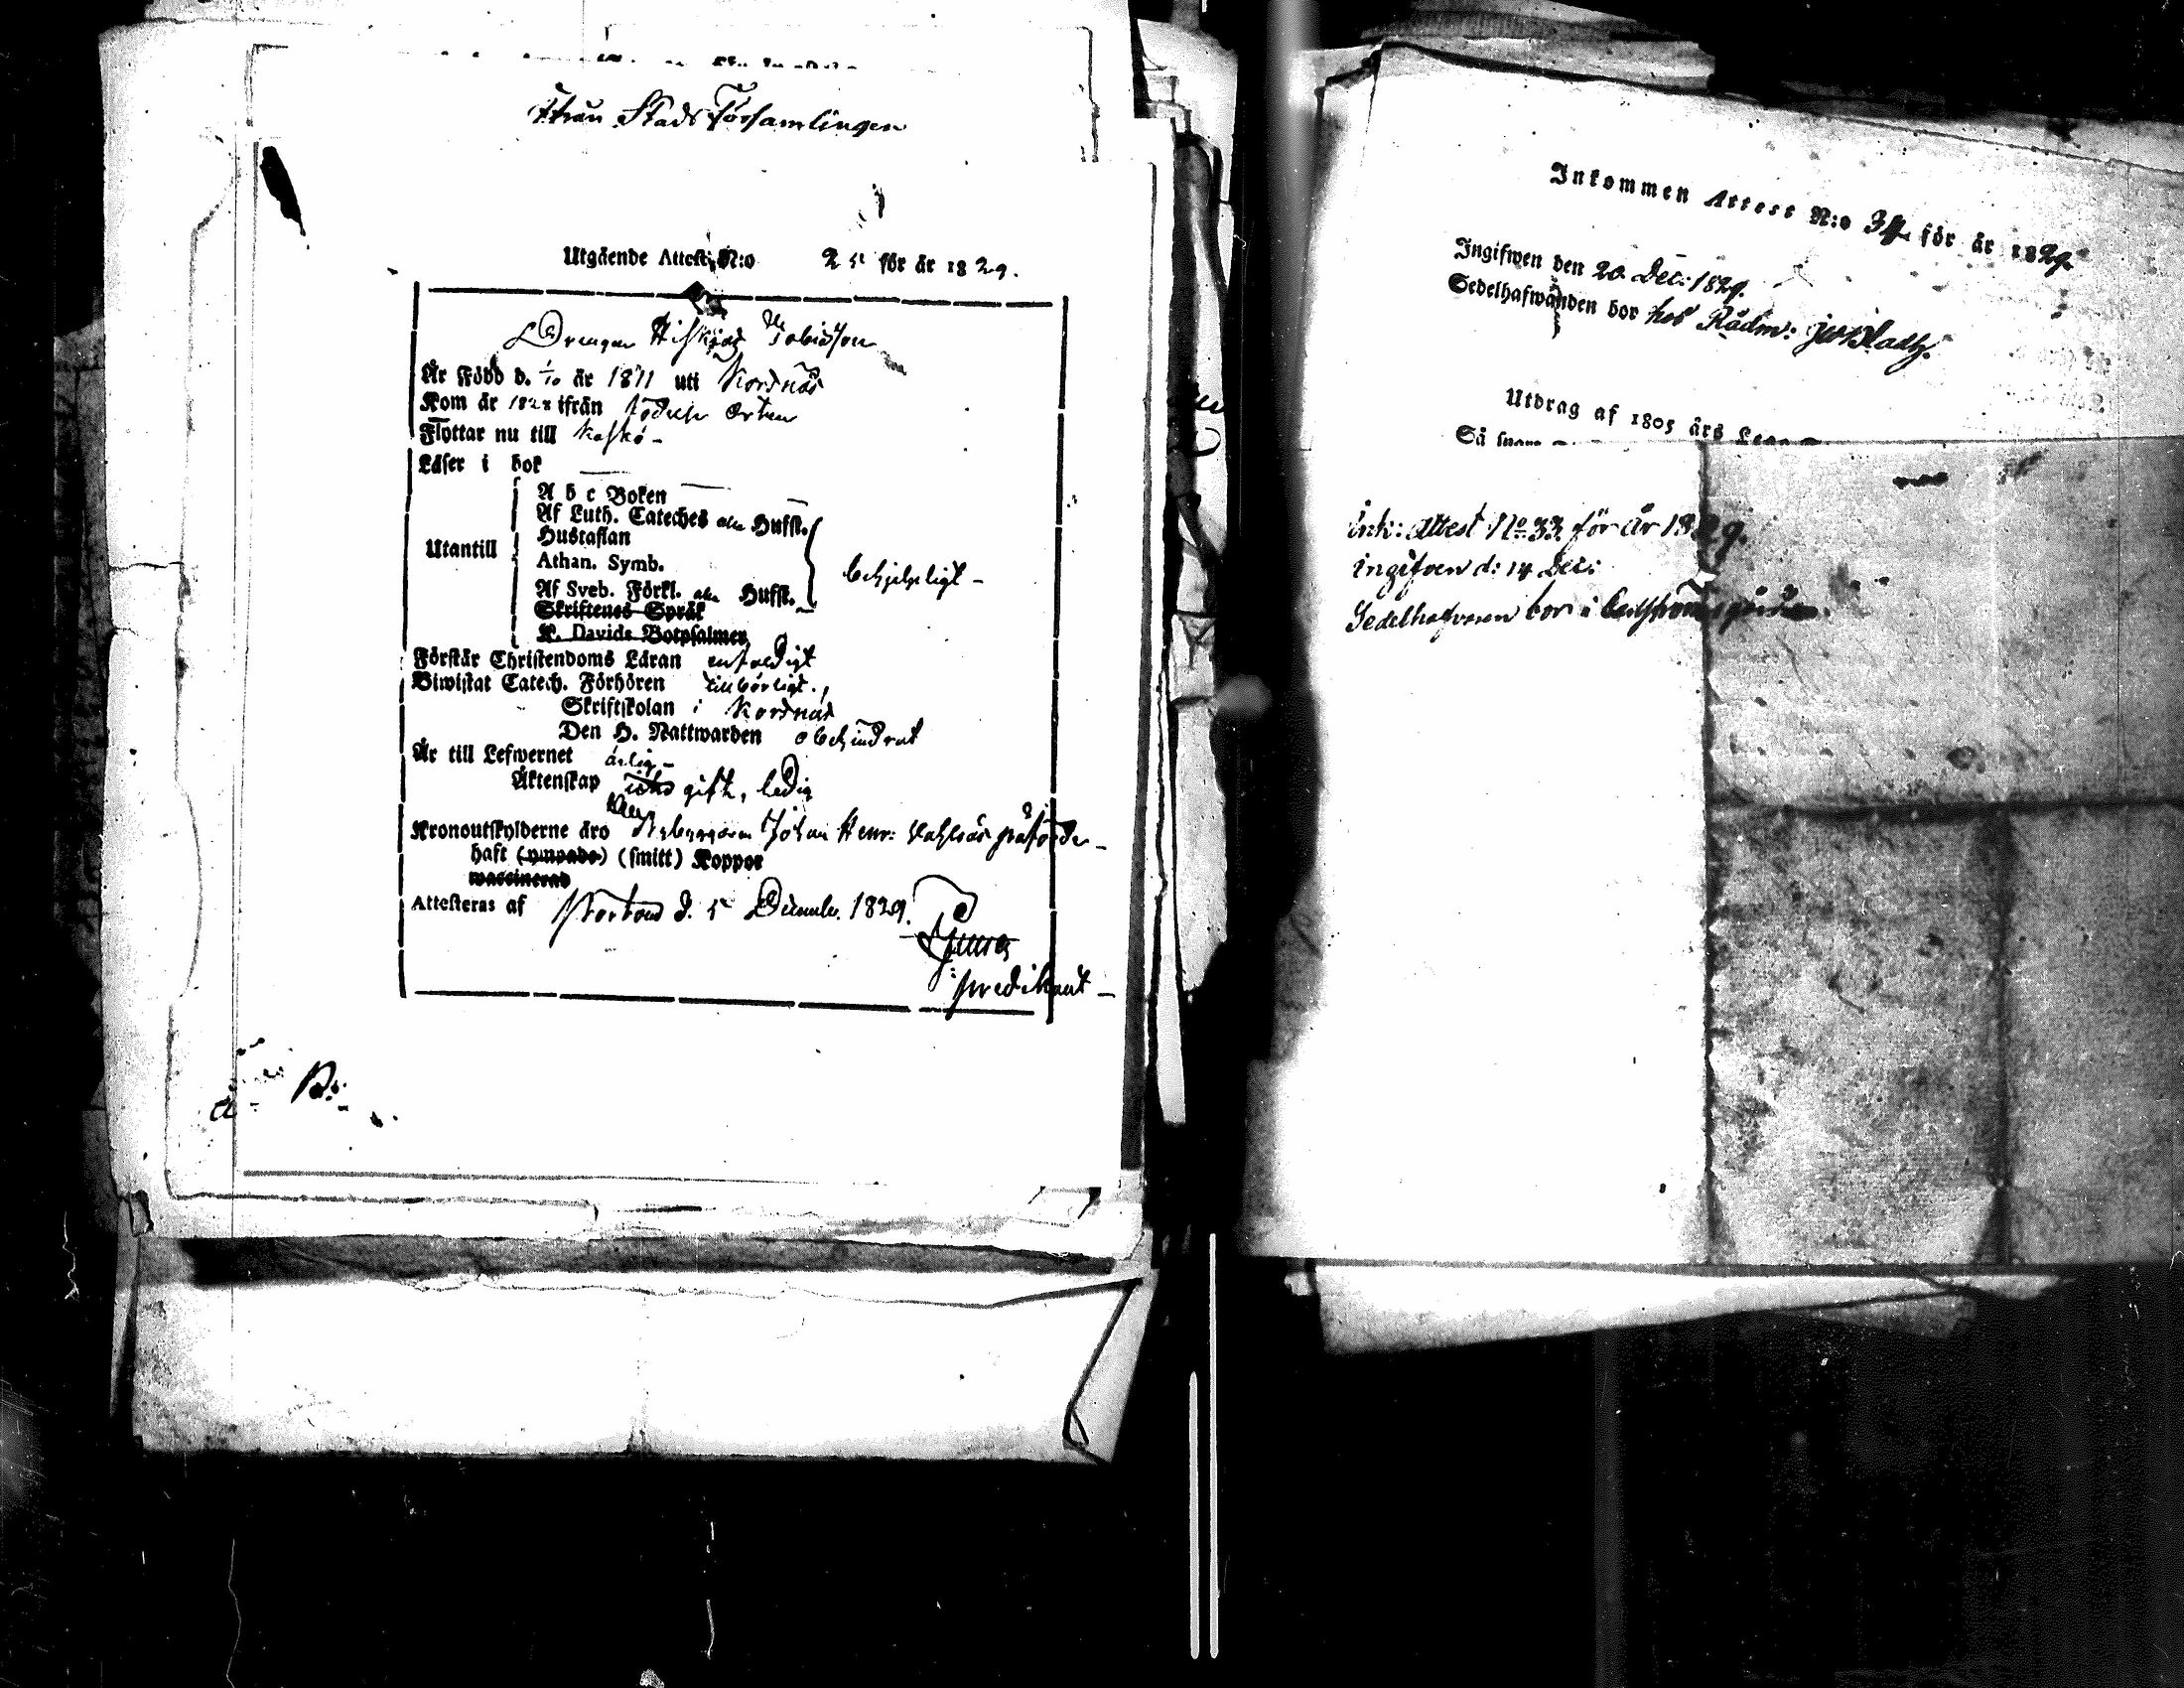 Stads Församlingen
Utgående Attest. N:o 25 för år 1829.
Drengen Hiskias Tobiasson
Är Född d. 1/10 år 1811 uti Korsnäs
Kom år 1828 ifrån orten
Flyttar nu till Kaskö –
Läser i bok —
Utantill
A b c Boken —
Af Luth. Cateches Hufst.
Hustaflan
Athan. Symb.
behjelpeligt –
Af Sveb. Förkl. Hufst.
Skriftenes Språk
K. Davids Botpsalmer
Förstår Christendoms Läran enfaldigt
Biwistat Catech. Förhören tillbörligt.
Skriftskolan i Korsnäs
Den H. Nattwarden obehindrat
Är till Lefwernet ärlig –
Äktenskap gift, ledig
Kronoutskylderne äro Johan Henr:
haft (ympade) (smitt) Koppor
waccinerad
Attesteras af d. 5 Decemb. 1829.
predikant –
Inkommen Attest N:o 34 för år 1829.
Ingifwen den 20 Dec: 1829.
Sedelhafwanden bor hos Rådm:
Utdrag af 1805 års
Så snart
Ink: attest No 33 för år 1829.
ingifven d: 14 Dec:
Sedelhafvaren bor i